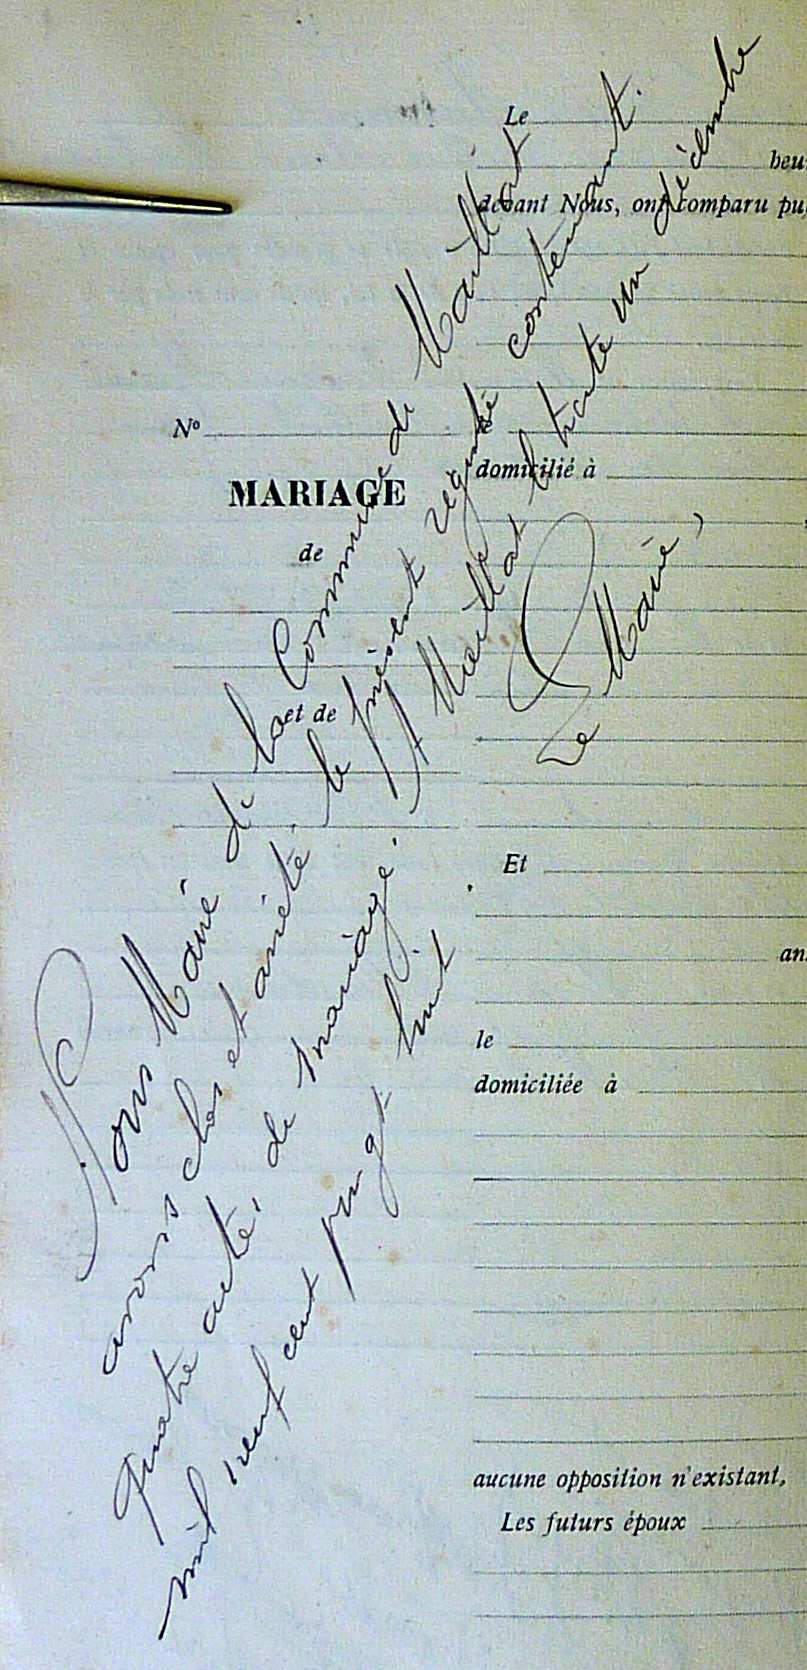 Le
heu
devant Nous, ont comparu pu
Nº
né
domicilié à
MARIAGE
de
et de
Et
an
le
domiciliée à
aucune opposition n'existant,
Les futurs époux
Nous Maire de la Commune de Maillat
avons clos et arrêté le présent registre contenant.
quatre actes de mariage. A Maillat le trente un décembre
mil neuf cent vingt huit
Le Maire,